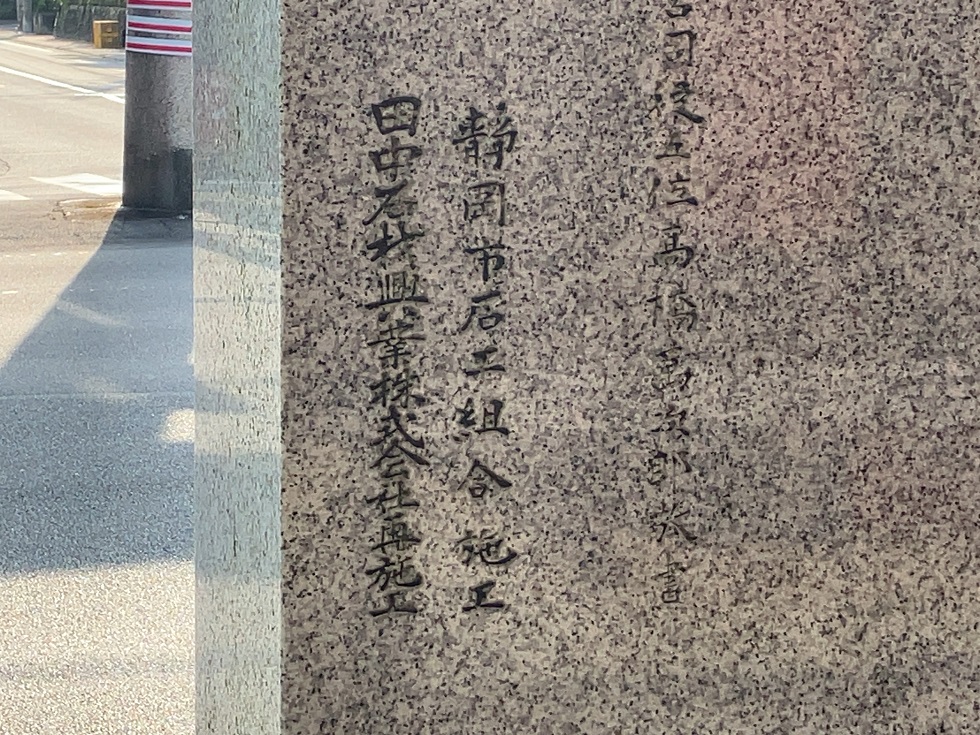 司従五位高橋次郎敬書
静岡市石工組合施工
田中石材興業株式会社再施工